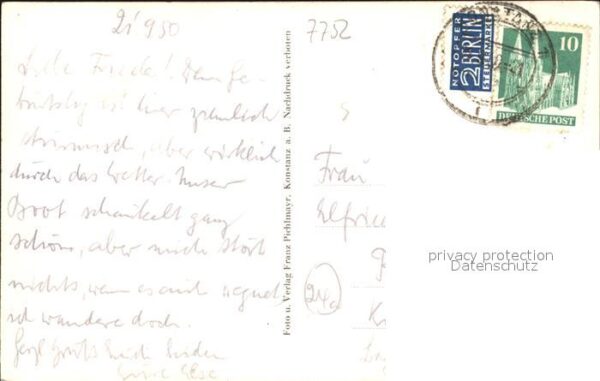 7752
Liebe Friedel! Dein Ge-
burtstag ist hier ziemlich
stürmisch, aber wirklich
durch das Wetter. Unser
Boot schaukelt ganz
schön, aber mich stört
nichts, wenn es auch regnet,
ich wandere doch.
Herzl. Grüße Euch beiden
Eure Else
Foto u. Verlag Franz Pichlmayr, Konstanz a. B. Nachdruck verboten
NOTOPFER
2 BERLIN
STEUERMARKE
10
DEUTSCHE POST
Frau
Elfrie
privacy protection
Datenschutz